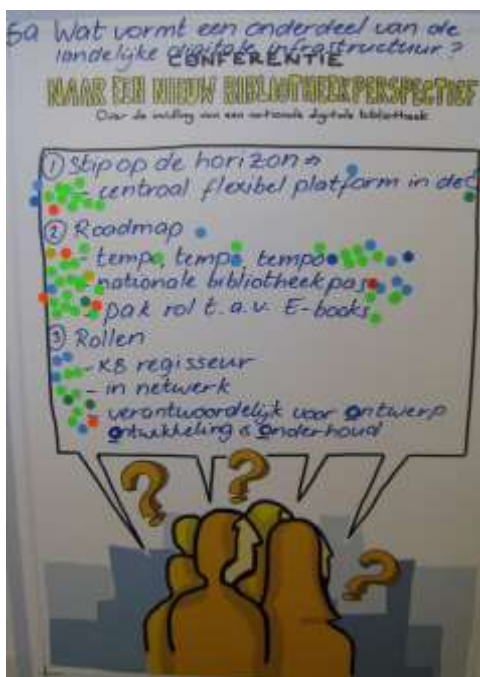 5a Wat vormt een onderdeel van de
landelijke digitale infrastructuur?
CONFERENTIE
NAAR EEN NIEUW BIBLIOTHEEKPERSPECTIEF
Over de invulling van een nationale digitale bibliotheek
① Stip op de horizon ⇒
- centraal flexibel platform in de
② Roadmap
- tempo, tempo, tempo
- nationale bibliotheekpas
- pak rol t.a.v. E-books
③ Rollen
- KB regisseur
- in netwerk
- verantwoordelijk voor ontwerp
ontwikkeling & onderhoud
?
?
?